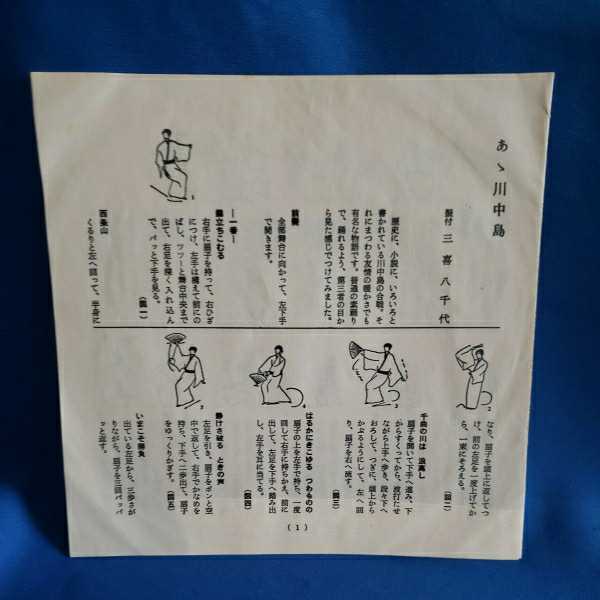 あゝ川中島
振付 三喜八千代
歴史に、小説に、いろいろと
書かれている川中島の合戦、そ
れにまつわる友情の豊かさでも
有名な物語です。普通の素踊り
で、踊れるよう、第三者の目か
ら見た感じでつけてみました。
前奏
全部舞台に向かって、左下手
で開きます。
―一番―
霧立ちこむる
右手に扇子を持って、右ひざ
につけ、左手は構えて前にの
ばし、ツツーと舞台中央まで
出て、右足を深く入れ込ん
で、パッと下手を見る。
(図一)
西条山
くるりと左へ回って、半身に
1
なり、扇子を頭上に返してつ
け、前の左足を一度上げてか
ら、一束にそろえる。
(図二)
2
千曲の川は 浪高し
扇子を開いて下手へ進み、下
からすくってから、波打たせ
ながら上手へ歩き、段々下へ
おろして、つぎに、頭上から
かぶるようにして、左へ回
り、扇子を右へ流す。
(図三)
3
はるかにきこゆる つわものの
扇子の上を左手で持ち、一度
回して右手に持ちかえ、前に
出して、左足を下手へ踏み出
し、左手を耳に当てる。
(図四)
4
静けさ破る ときの声
左足を引き、扇子をポンと空
中で返して、右手でかなめを
持ち、下手へ二歩出て、扇子
をゆっくりかざす。
(図五)
5
いまこそ勝負
出ている左足から、三歩さが
りながら、扇子を三回パッパ
ッと返す。
(1)